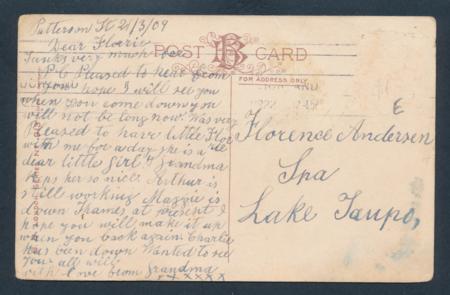 Patterson St 21/3/09
Dear Florrie
Tanks very much for
P.C. Pleased to hear from
you hope I will see you
when you come down you
will not be long now. Was very
Pleased to have little Flor
with me for a day she is a
dear little Girl. Grandma
keps her so nice. Arthur is
still working Maggie is
down Thames at present I
hope you will make it up
when you back again Charlie
has been down Wanted to see
you all well
with love from Grandma
xxxx
POST CARD
FOR ADDRESS ONLY.
E
Florence Andersen
Spa
Lake Taupo,